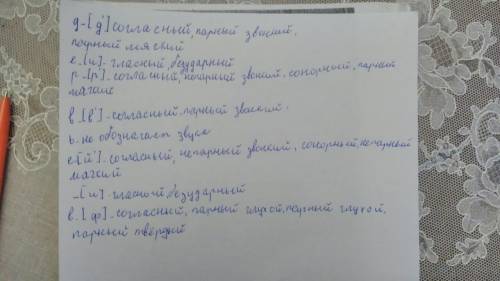 g-[g'] согласный, парный звонкий,
парный мягкий
е-[и]-гласный, безударный
р-[р']-согласный, непарный звонкий, сонорный, парный
мягкий
в-[в']-согласный, парный звонкий,
ь-не обозначает звука
е-[й']-согласный, непарный звонкий, сонорный, непарный
мягкий
-[и]-гласный, безударный
в-[ф]-согласный, парный глухой, парный глухой,
парный твёрдый